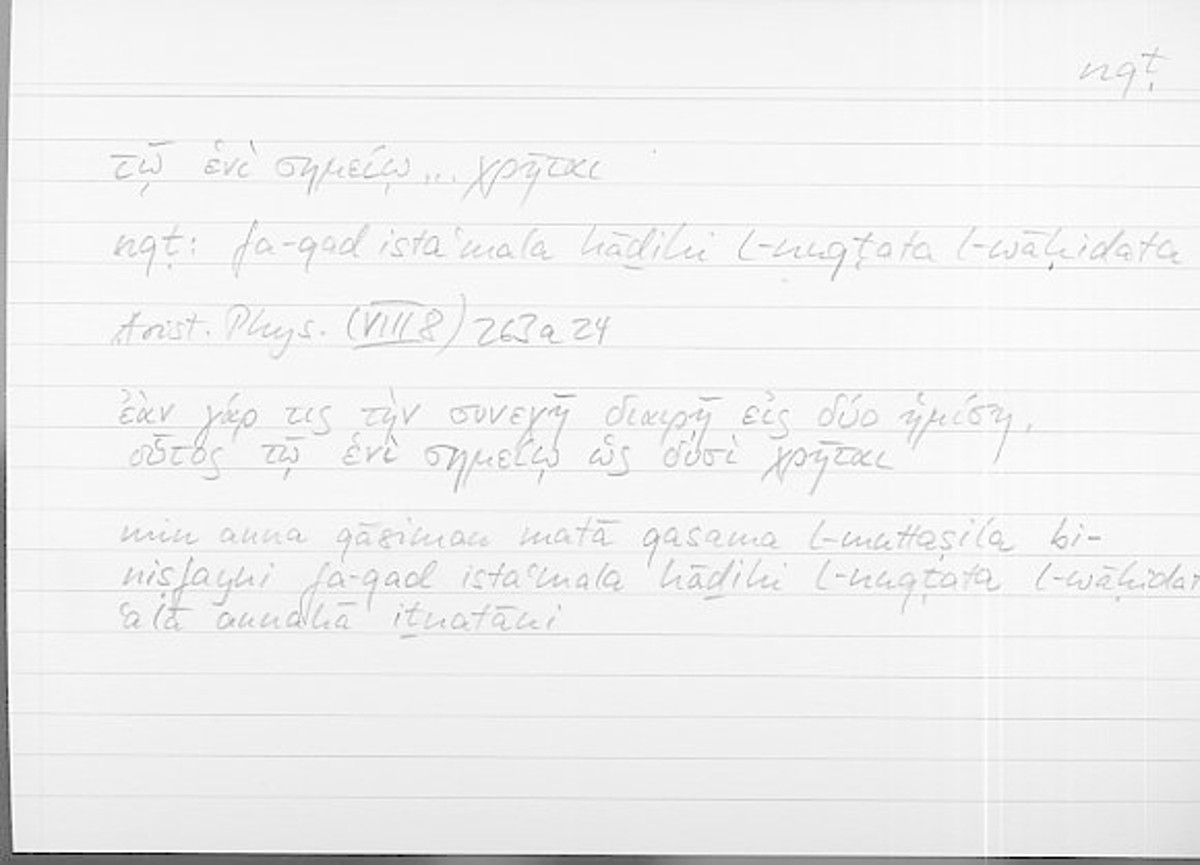 nqṭ
τῷ ἑνὶ σημείῳ... χρῆται
nqṭ: fa-qad istaʿmala hāḏihi l-nuqṭata l-wāḥidata
Arist. Phys. (VIII 8) 263a24
ἐὰν γάρ τις τὴν συνεχῆ διαιρῇ εἰς δύο ἡμίση,
οὗτος τῷ ἑνὶ σημείῳ ὡς δυσὶ χρῆται
min anna qāsiman matā qasama l-muttaṣila bi-
niṣfayni fa-qad istaʿmala hāḏihi l-nuqṭata l-wāḥidat
ʿalā annahā iṯnatāni